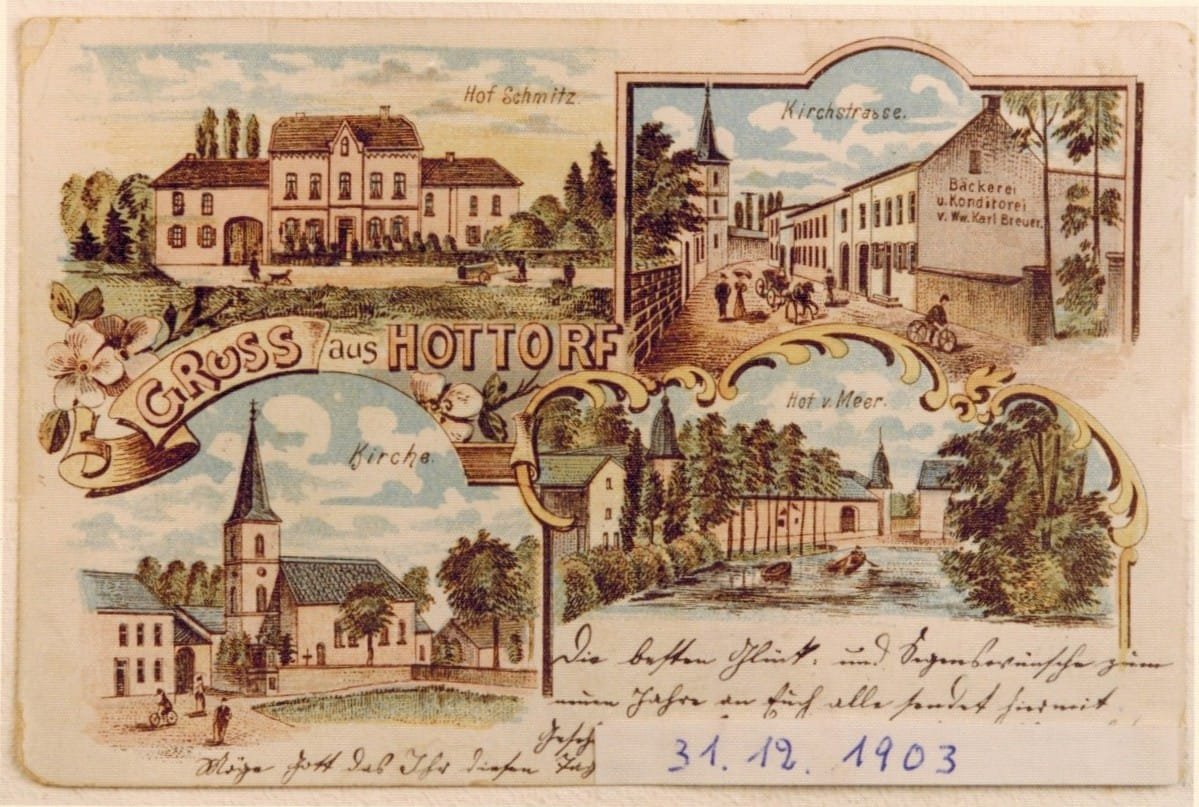 Hof Schmitz.
Kirchstrasse.
Bäckerei
u. Konditorei
v. Ww. Karl Breuer.
GRUSS aus HOTTORF
Kirche.
Hof v. Meer.
Die besten Glück- und Segenswünsche zum
neuen Jahre an Euch alle sendet hiermit
Möge Gott das Ihr diesen Tag
31. 12. 1903